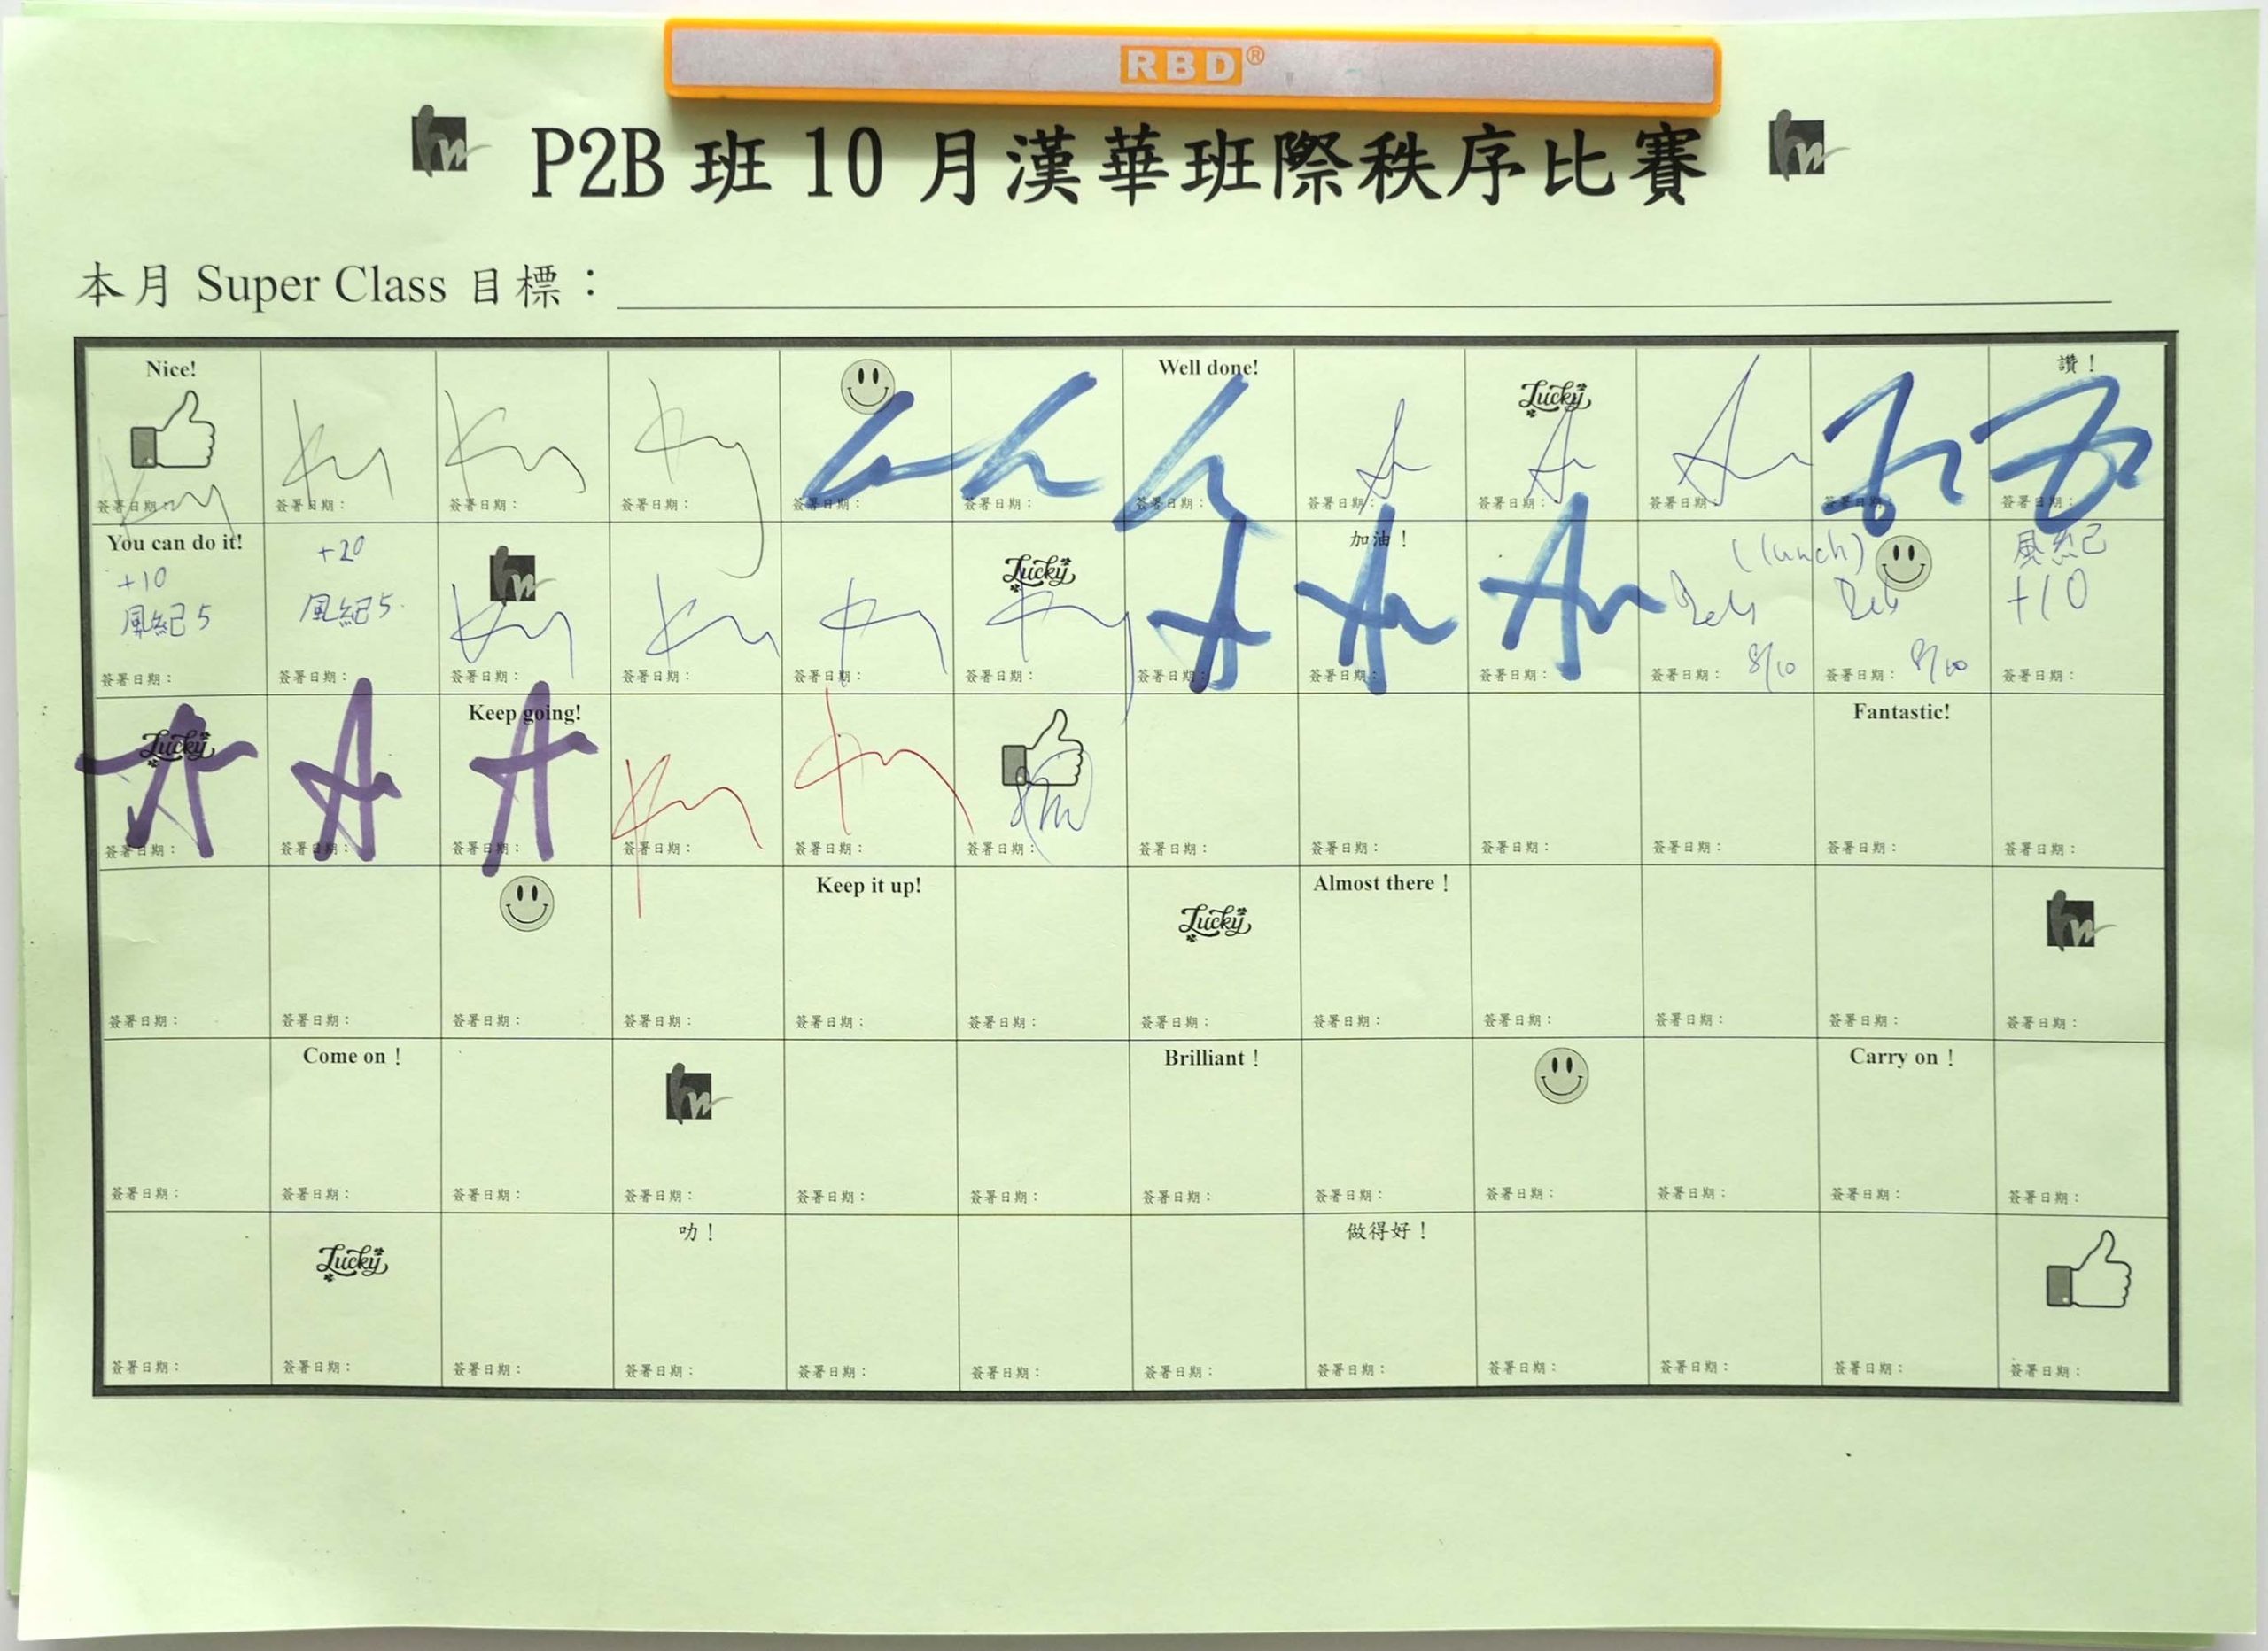 RBD®
P2B 班 10 月漢華班際秩序比賽
本月 Super Class 目標：
Nice! Well done! Lucky 讚！
簽署日期： 簽署日期： 簽署日期： 簽署日期： 簽署日期： 簽署日期： 簽署日期： 簽署日期： 簽署日期： 簽署日期： 簽署日期： 簽署日期：
You can do it! +20 Lucky 加油！ (lunch) 風紀
+10 +10
風紀 5 風紀 5
8/10 8/10
簽署日期： 簽署日期： 簽署日期： 簽署日期： 簽署日期： 簽署日期： 簽署日期： 簽署日期： 簽署日期： 簽署日期： 簽署日期： 簽署日期：
Lucky Keep going! Fantastic!
簽署日期： 簽署日期： 簽署日期： 簽署日期： 簽署日期： 簽署日期： 簽署日期： 簽署日期： 簽署日期： 簽署日期： 簽署日期： 簽署日期：
Keep it up! Lucky Almost there！
簽署日期： 簽署日期： 簽署日期： 簽署日期： 簽署日期： 簽署日期： 簽署日期： 簽署日期： 簽署日期： 簽署日期： 簽署日期： 簽署日期：
Come on！ Brilliant！ Carry on！
簽署日期： 簽署日期： 簽署日期： 簽署日期： 簽署日期： 簽署日期： 簽署日期： 簽署日期： 簽署日期： 簽署日期： 簽署日期： 簽署日期：
Lucky 叻！ 做得好！
簽署日期： 簽署日期： 簽署日期： 簽署日期： 簽署日期： 簽署日期： 簽署日期： 簽署日期： 簽署日期： 簽署日期： 簽署日期： 簽署日期：